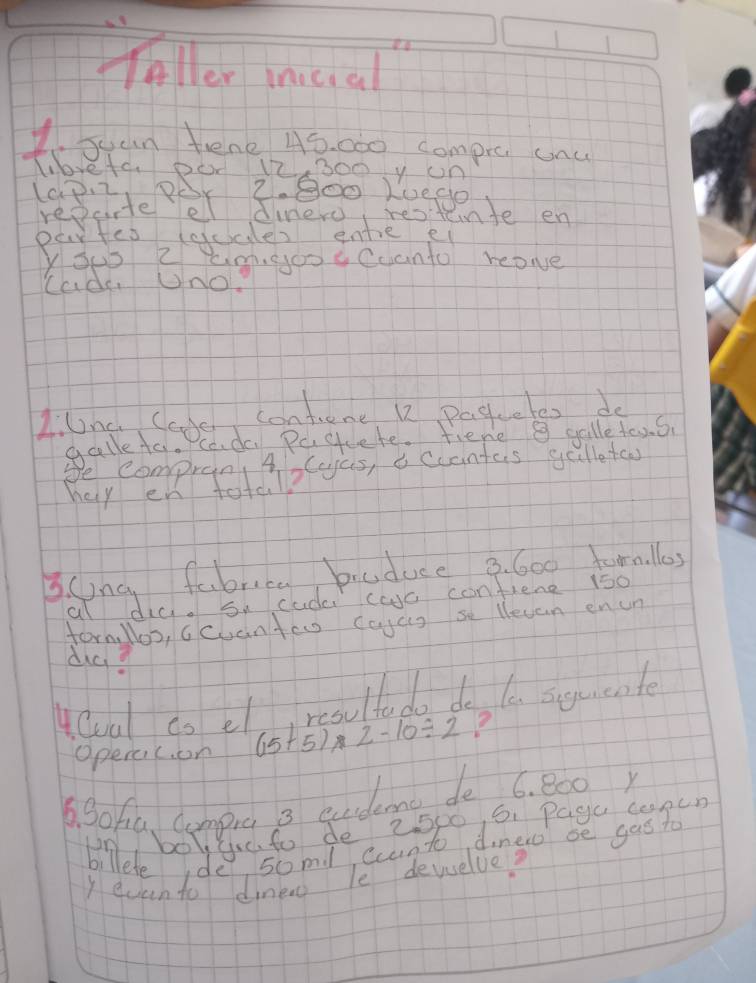 "Taller inicial"
1. Juan tiene 45.000 compra una
libreta por 12.300 y un
lapiz, por 2.800 Luego
reparte el dinero restante en
partes iguales entre el
y sus 2 amigos ¿Cuanto resive
Cada Uno?
2. Una Caja contiene 12 Paquetes de
galleta. Cada Paquete. tiene 8 galletas. Si
Se Compran 4 Cajas, ¿Cuantas galletas
hay en total?
3. Una fabrica produce 3.600 tornillos
al dia. Si cada caja contiene 150
tornillos, ¿Cuantas cajas se llevan en un
dia?
4. Cual es el resultado de la siguiente
Operacion (15+5) x 2 - 10 ÷ 2?
5. Sofia Compra 3 cuaderno de 6.800 y
un boligrafo de 2.500, Si Paga con un
billete de 50 mil cuanto dinero se gasto
y cuanto dinero le devuelve?